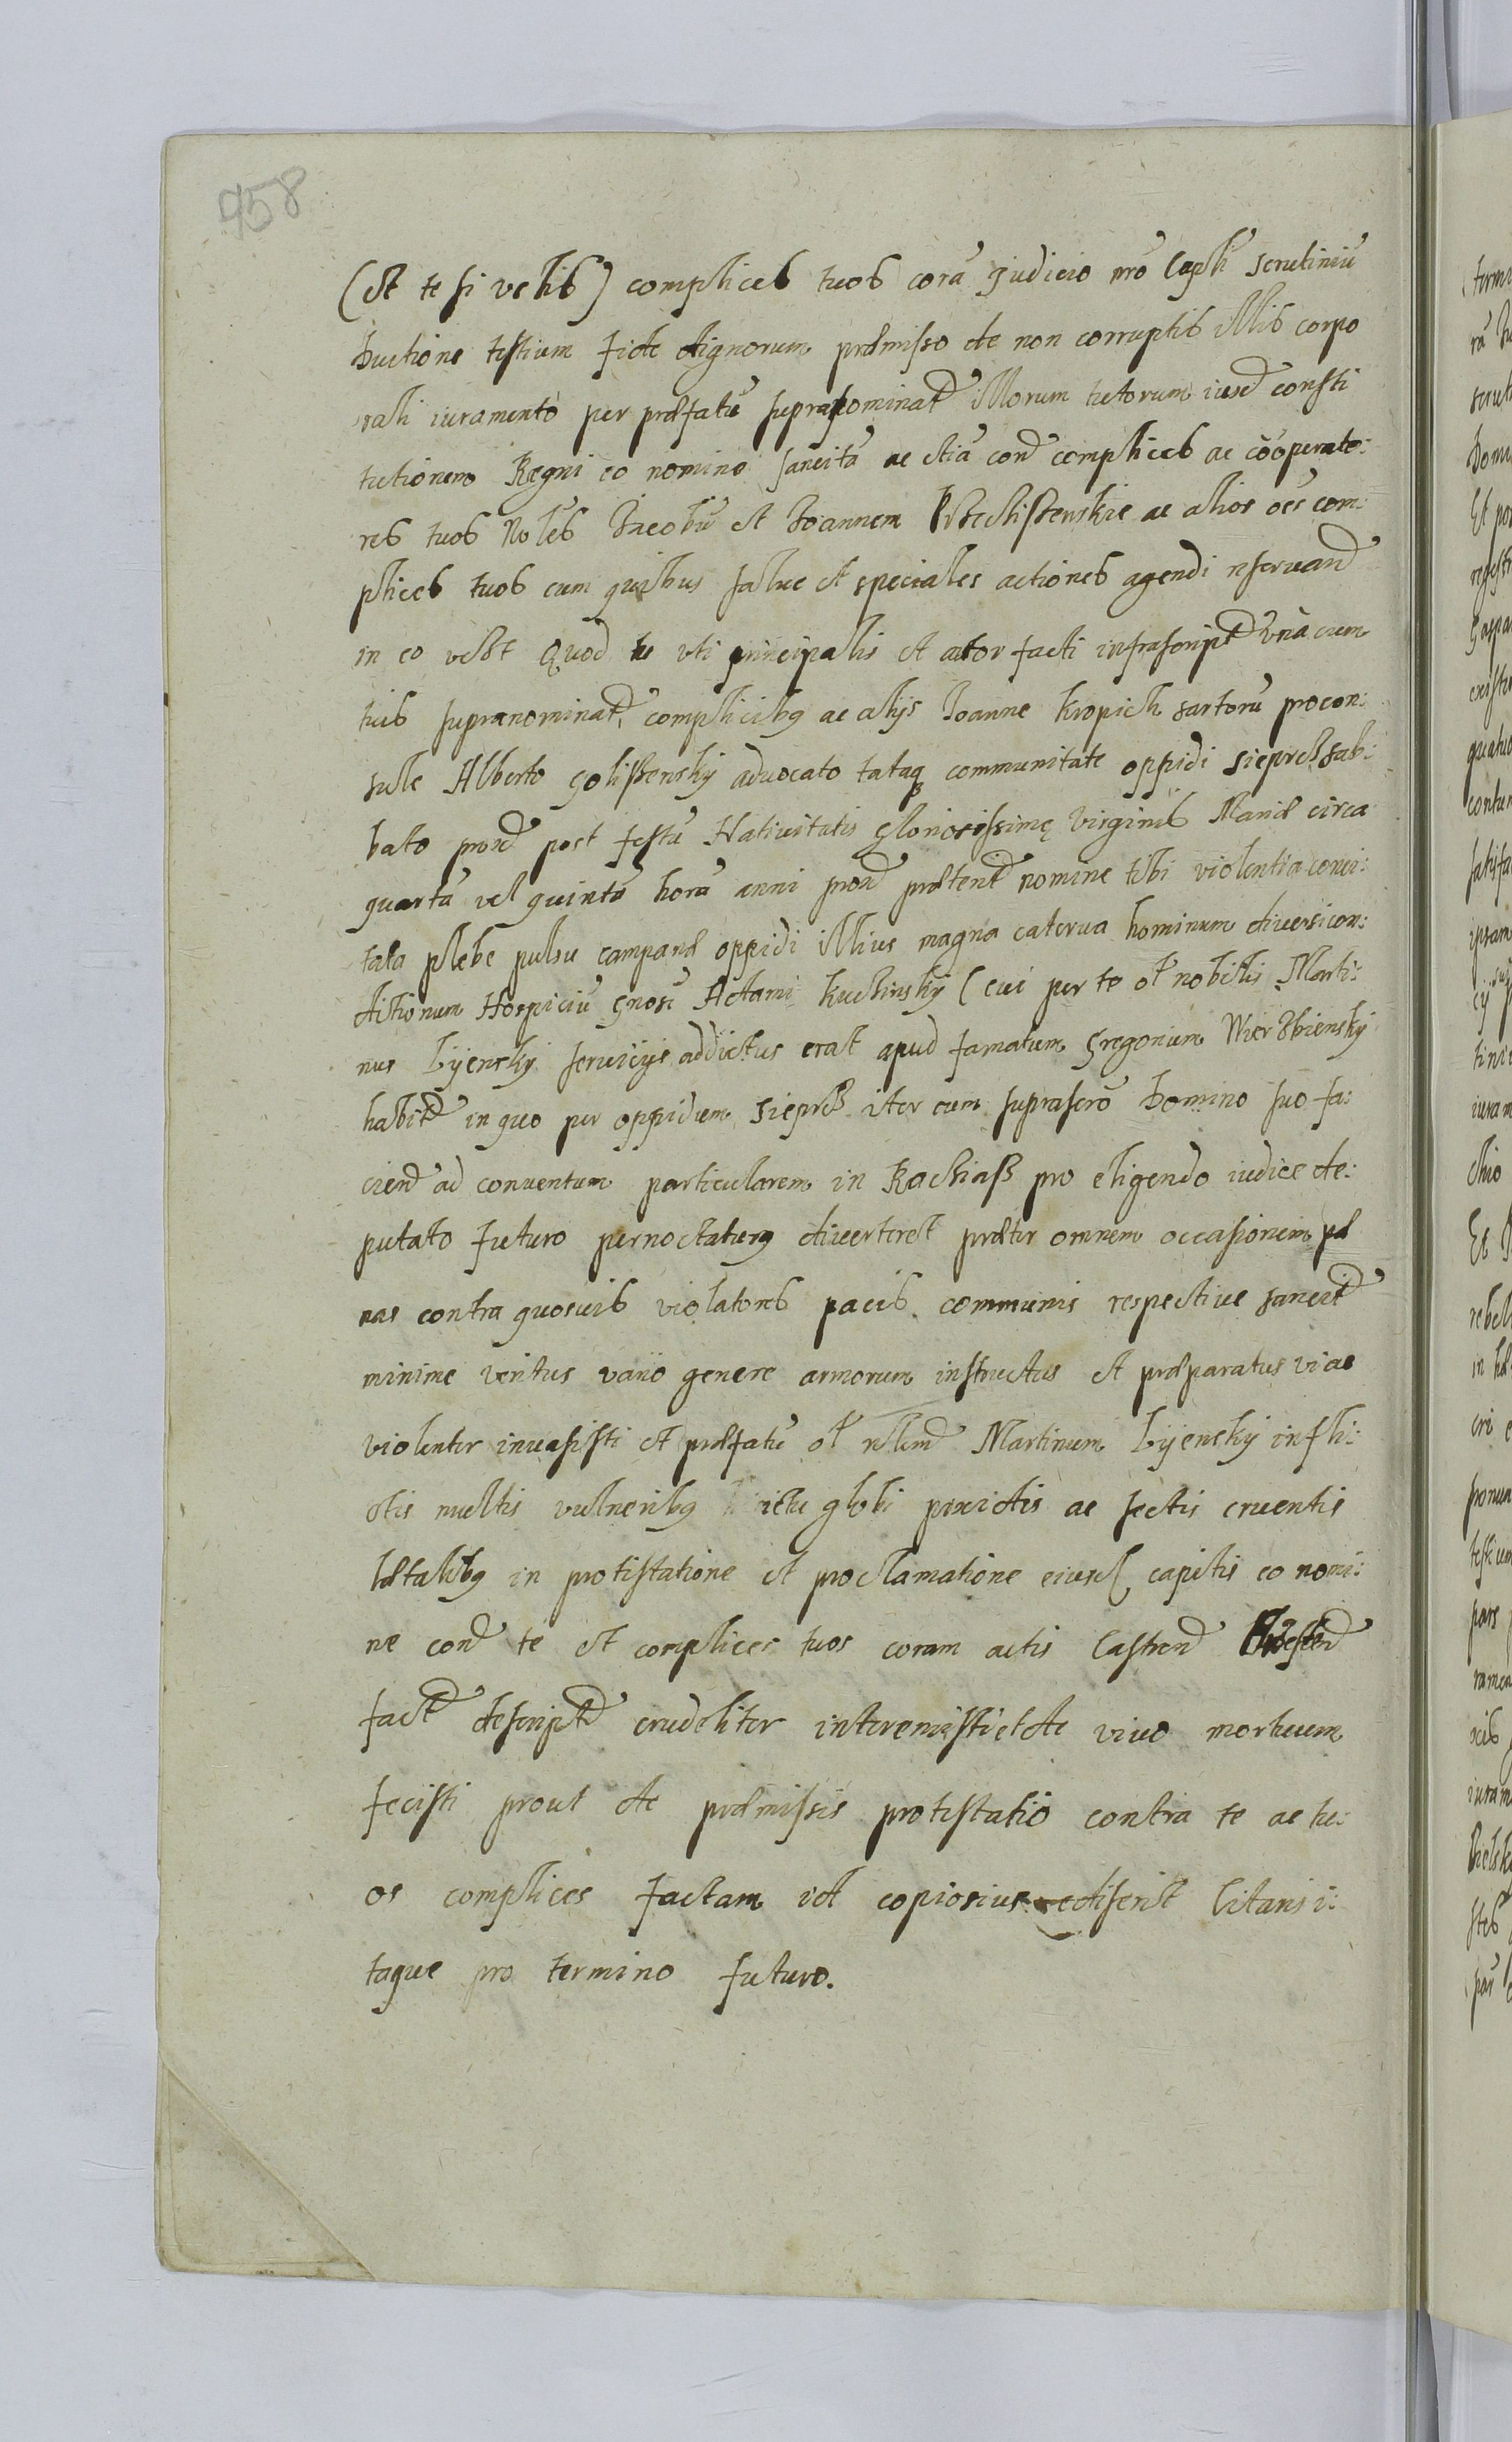 958
(et te si velis) complices tuos corā Judicio nrō Capli scrutiniū
ductione testium fide dignorum præmisso de non corruptis illis corpo
rali iuramento per præfatū supranominat illorum tutorum iuxᵈ consti
tutionem Regni eo nomine sancitā ac etiā conᵈ complices ac cōoperato:
res tuos Nobles Jacobū et Joannem ac alios oēs com:
plices tuos cum quibus salue et speciales actiones agendi reseruand
in eo vczt Quod tu vti principalis et actor facti infrascript vnà cum
tuis supranominat complicibq ac alijs Joanne Kropich sartorū procon:
sule Alberto Golissensky advocato totaq communitate oppidi Sieprcz sab:
bato prox post festū Natiuitatis Gloriosissimę Virginis Mariæ circa
quartā vel quintā horā anni prox prætent nomine tibi violentia conci:
tata plebe pulsu campanæ oppidi illius magna caterua hominum diuersi con:
ditionum Hospiciū Gnosi Adami Kuchinsky (cui per te ol nobilis Marti:
nus Lyensky seruicijs addictus erat apud famatum Gregorium Wierzbiensky
habit in quo per oppidum Sieprcz iter cum suprascro Domino suo fa:
ciend ad conuentum particularem in Rachiasz pro eligendo iudice de:
putato futuro pernoctaturq diuerteret præter omnem occasionem pæ
nas contra quosuis violatores pacis communis respectiue sancit
minime veritus vario genere armorum instructus et præparatus vi ac
violenter inuasisti et præfatū ol nblem Martinum Lyensky infli:
ctis multis vulneribq ictu globi pixidis ac sectis cruentis
lætalibq in protestatione et proclamatione eiusd capitis eo nomi:
ne cond te et complices tuos coram actis Castrend
fact descript crudeliter interemisti et de viuo mortuum
fecisti prout de præmissis protestatio contra te ac tu:
os complices factam vel copiosius edisserit Citaris i:
taque pro termino futuro.